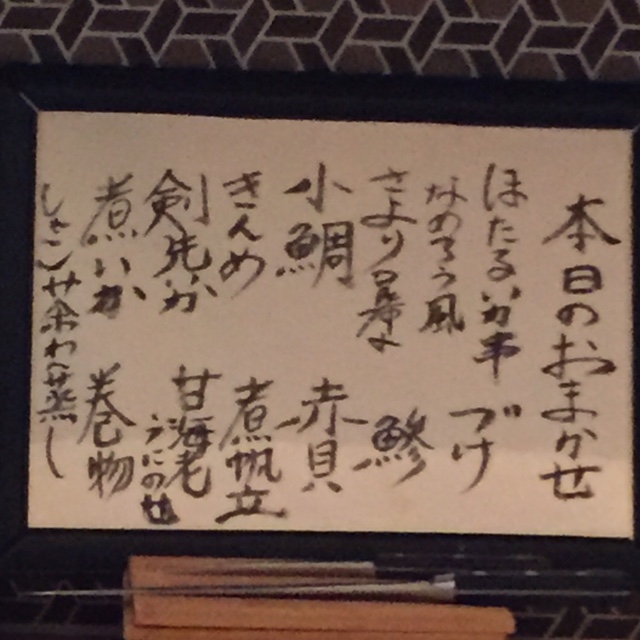 本日のおまかせ
ほたるいか串
なめろう風
さより昆布〆
小鯛
きんめ
剣先いか
煮いか
しゃこ
茶わん蒸し
づけ
鯵
赤貝
煮帆立
甘海老
うにのせ
巻物